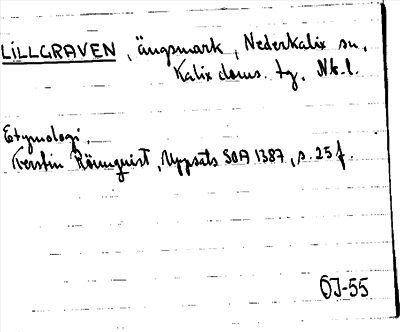 LILLGRAVEN, ängsmark, Nederkalix sn.
Kalix doms. tg. Nb. l.
Etymologi.
Kerstin Rönnquist, Uppsats SOA 1387, s. 25 f.
OJ-55